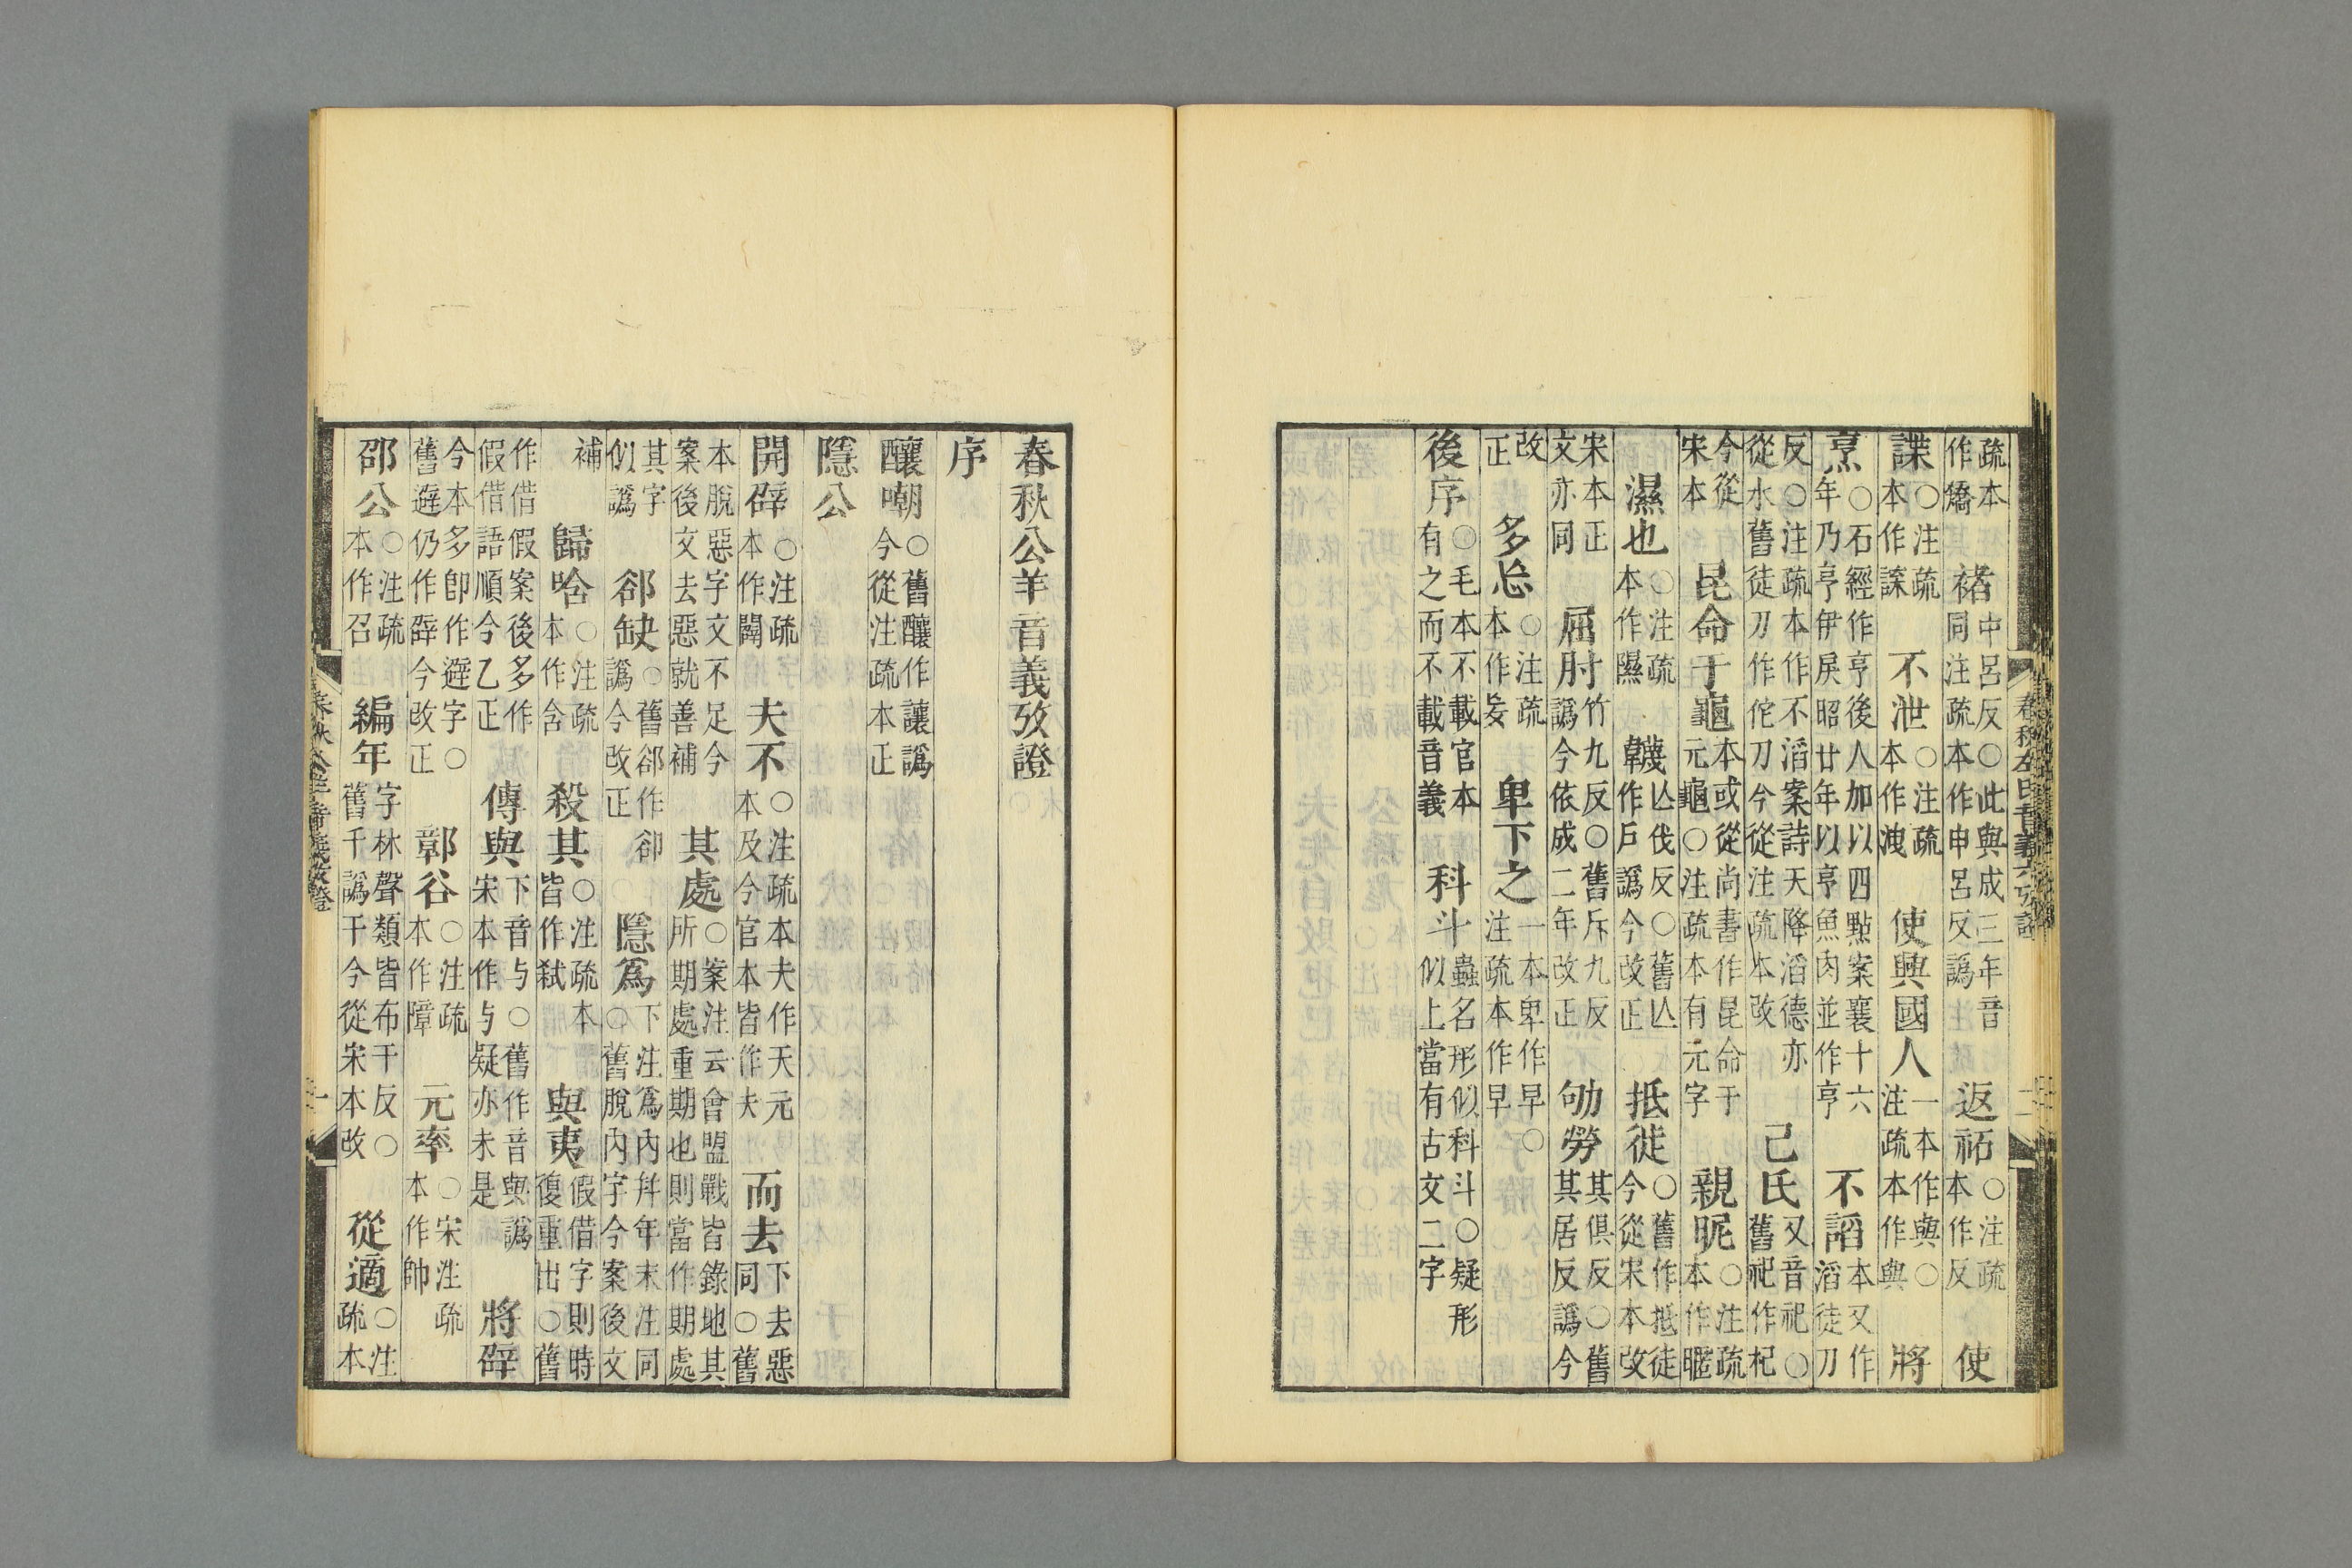 疏本作矯　褚中呂反○此與成三年音同注疏本作申呂反譌　返祏○注疏本作反　使
諜○注疏本作諜　不泄○注疏本作洩　使興國人一本作與○注疏本作與　將
烹○石經作亨後人加以四點案襄十六年乃亨伊戾昭廿年以亨魚肉並作亨　不謟本又作滔徒刀
反○注疏本作不滔案詩天降滔德亦從水舊徒刀作佗刀今從注疏本改　己氏又音祀○舊祀作杞
今從宋本　昆命于龜本或從尚書作昆命于元龜○注疏本有元字　親昵○注疏本作暱
濕也○注疏本作隰　韈亾伐反○舊亾作戶譌今改正　抵徒○舊作抵徒今從宋本改
宋本正文亦同　屈肘竹九反○舊斥九反譌今依成二年改正　劬勞其俱反○舊其居反譌今
改正　多忘○注疏本作妄　卑下之一本卑作早○注疏本作早
後序○毛本不載官本有之而不載音義　科斗蟲名形似科斗○疑形似上當有古文二字
春秋公羊音義攷證
序
釀嘲○舊釀作讓譌今從注疏本正
隱公
開辟○注疏本作闢　夫不○注疏本夫作天元本及今官本皆作夫　而去下去惡同○舊
本脫惡字文不足今案後文去惡就善補　其處○案注云會盟戰皆錄地其所期處重期也則當作期處
其字似譌　郤缺○舊郤作卻譌今改正　隱爲下注爲內幷年末注同○舊脫內字今案後文
補　歸唅○注疏本作含　殺其○注疏本皆作弒　與夷假借字則時復重出○舊
作借假案後多作假借語順今乙正　傳與下音与○舊作音與譌宋本作与疑亦未是　將辟
今本多卽作避字○舊避仍作辟今改正　鄣谷○注疏本作障　元率○宋注疏本作帥
邵公○注疏本作召　編年字林聲類皆布干反○舊千譌干今從宋本改　從適○注疏本